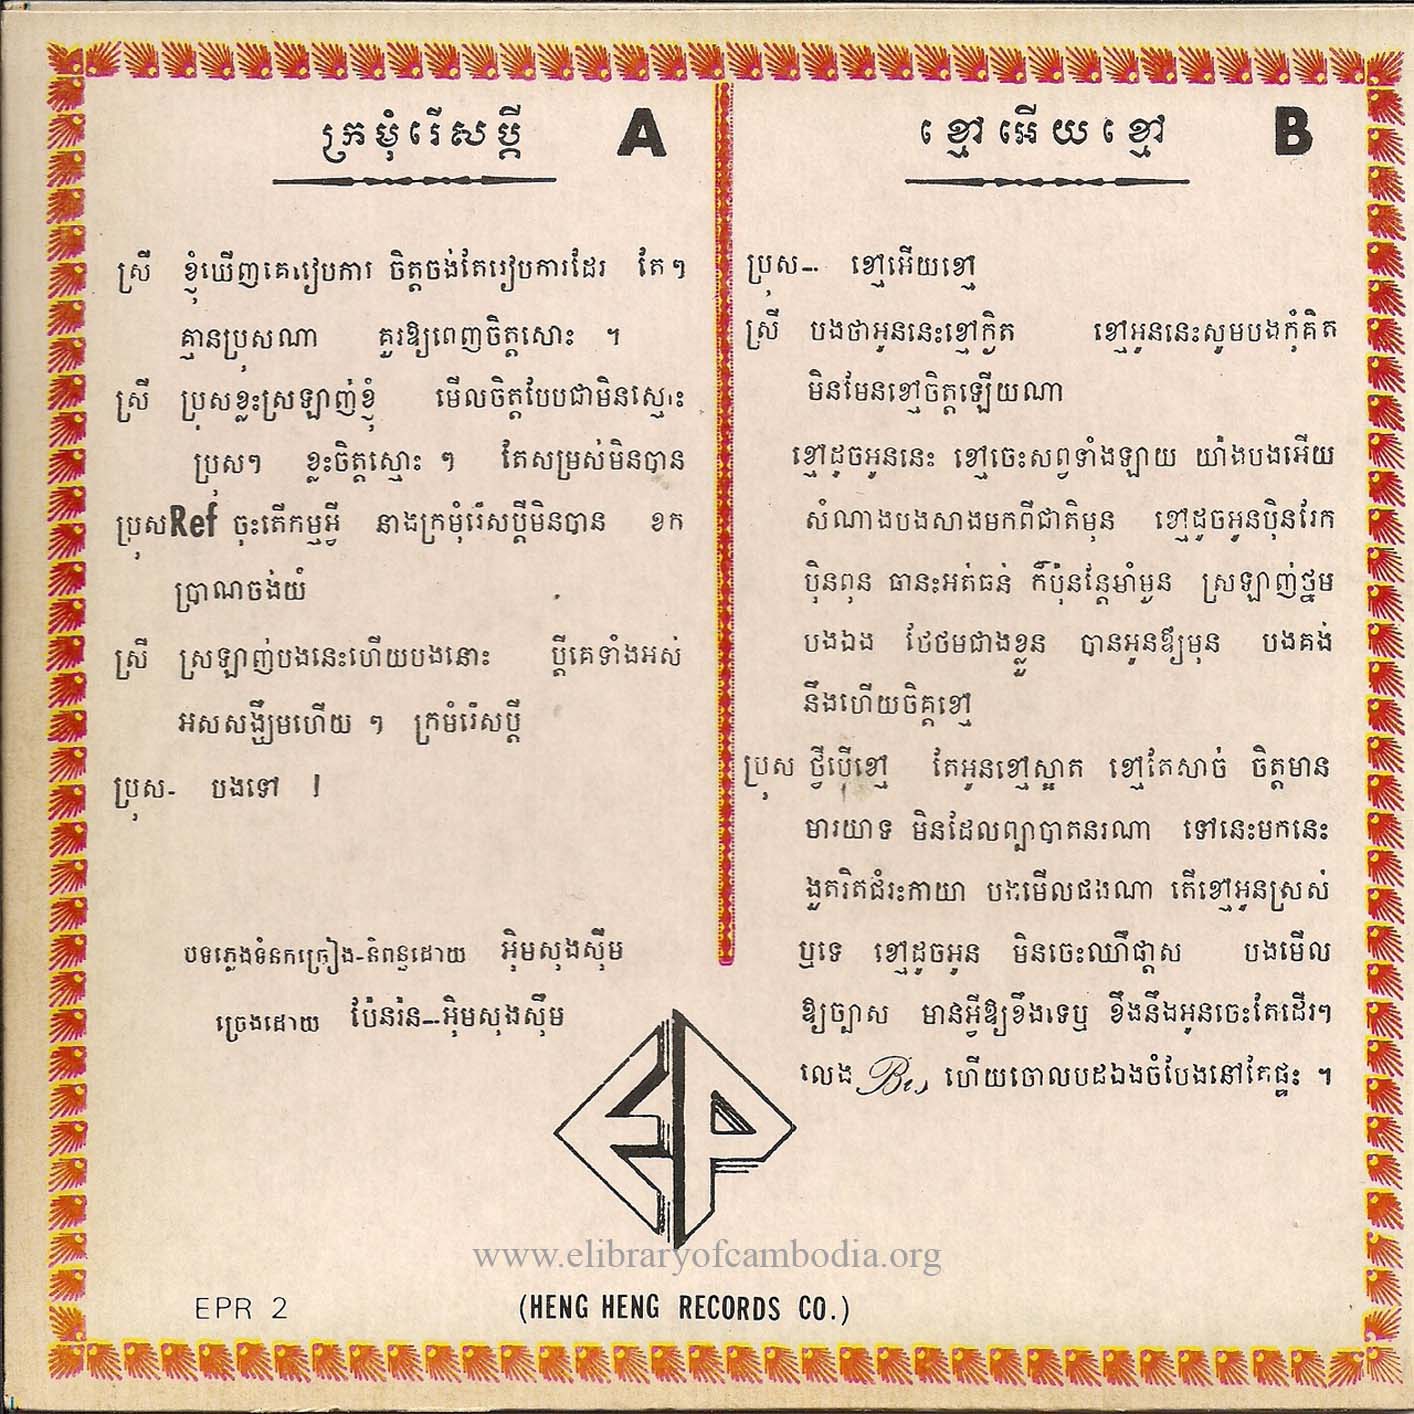 ក្រមុំរើសប្ដី A
ស្រី ខ្ញុំឃើញគេរៀបការ ចិត្តចង់តែរៀបការដែរ តែៗ
គ្មានប្រុសណា គួរឱ្យពេញចិត្តសោះ ។
ស្រី ប្រុសខ្លះស្រឡាញ់ខ្ញុំ មើលចិត្តបែបជាមិនស្មោះ
ប្រុសៗ ខ្លះចិត្តស្មោះ ៗ តែសម្រស់មិនបាន
ប្រុស Ref ចុះតើកម្មអ្វី នាងក្រមុំរើសប្ដីមិនបាន ខក
ប្រាណចង់យំ
ស្រី ស្រឡាញ់បងនេះហើយបងនោះ ប្ដីគេទាំងអស់
អសសង្ឃឹមហើយ ៗ ក្រមំរើសប្ដី
ប្រុស- បងទៅ !
បទភ្លេងទំនុកច្រៀង-និពន្ធដោយ អ៊ិមសុងស៊ឹម
ច្រៀងដោយ ប៉ែនរ៉ន-អ៊ិមសុងស៊ឹម
ខ្មៅអើយខ្មៅ B
ប្រុស-- ខ្មៅអើយខ្មៅ
ស្រី បងថាអូននេះខ្មៅក្ងិត ខ្មៅអូននេះសូមបងកុំគិត
មិនមែនខ្មៅចិត្តឡើយណា
ខ្មៅដូចអូននេះ ខ្មៅចេះសព្វទាំងឡាយ យ៉ាងបងអើយ
សំណាងបងសាងមកពីជាតិមុន ខ្មៅដូចអូនប៉ិនរែក
ប៉ិនពុន ធានះអត់ធន់ ក៏ប៉ុនន្តែមាំមួន ស្រឡាញ់ថ្នម
បងឯង ថែថមជាងខ្លួន បានអូនឪ្យមុន បងគង់
នឹងហើយចិត្តខ្មៅ
ប្រុស ថ្វីបើខ្មៅ តែអូនខ្មៅស្អាត ខ្មៅតែសាច់ ចិត្តមាន
មារយាទ មិនដែលព្យាបាតនរណា ទៅនេះមកនេះ
ងូតរិតជំរះកាយា បងមើលផងណា តើខ្មៅអូនស្រស់
ឬទេ ខ្មៅដូចអូន មិនចេះឈឺផ្ដាស បងមើល
ឱ្យច្បាស មានអ្វីឱ្យខឹងទេឬ ខឹងនឹងអូនចេះតែដើរៗ
លេង Bis ហើយចោលបដឯងចំបែងនៅតែផ្ទះ ។
EP
www.elibraryofcambodia.org
EPR 2 (HENG HENG RECORDS CO.)